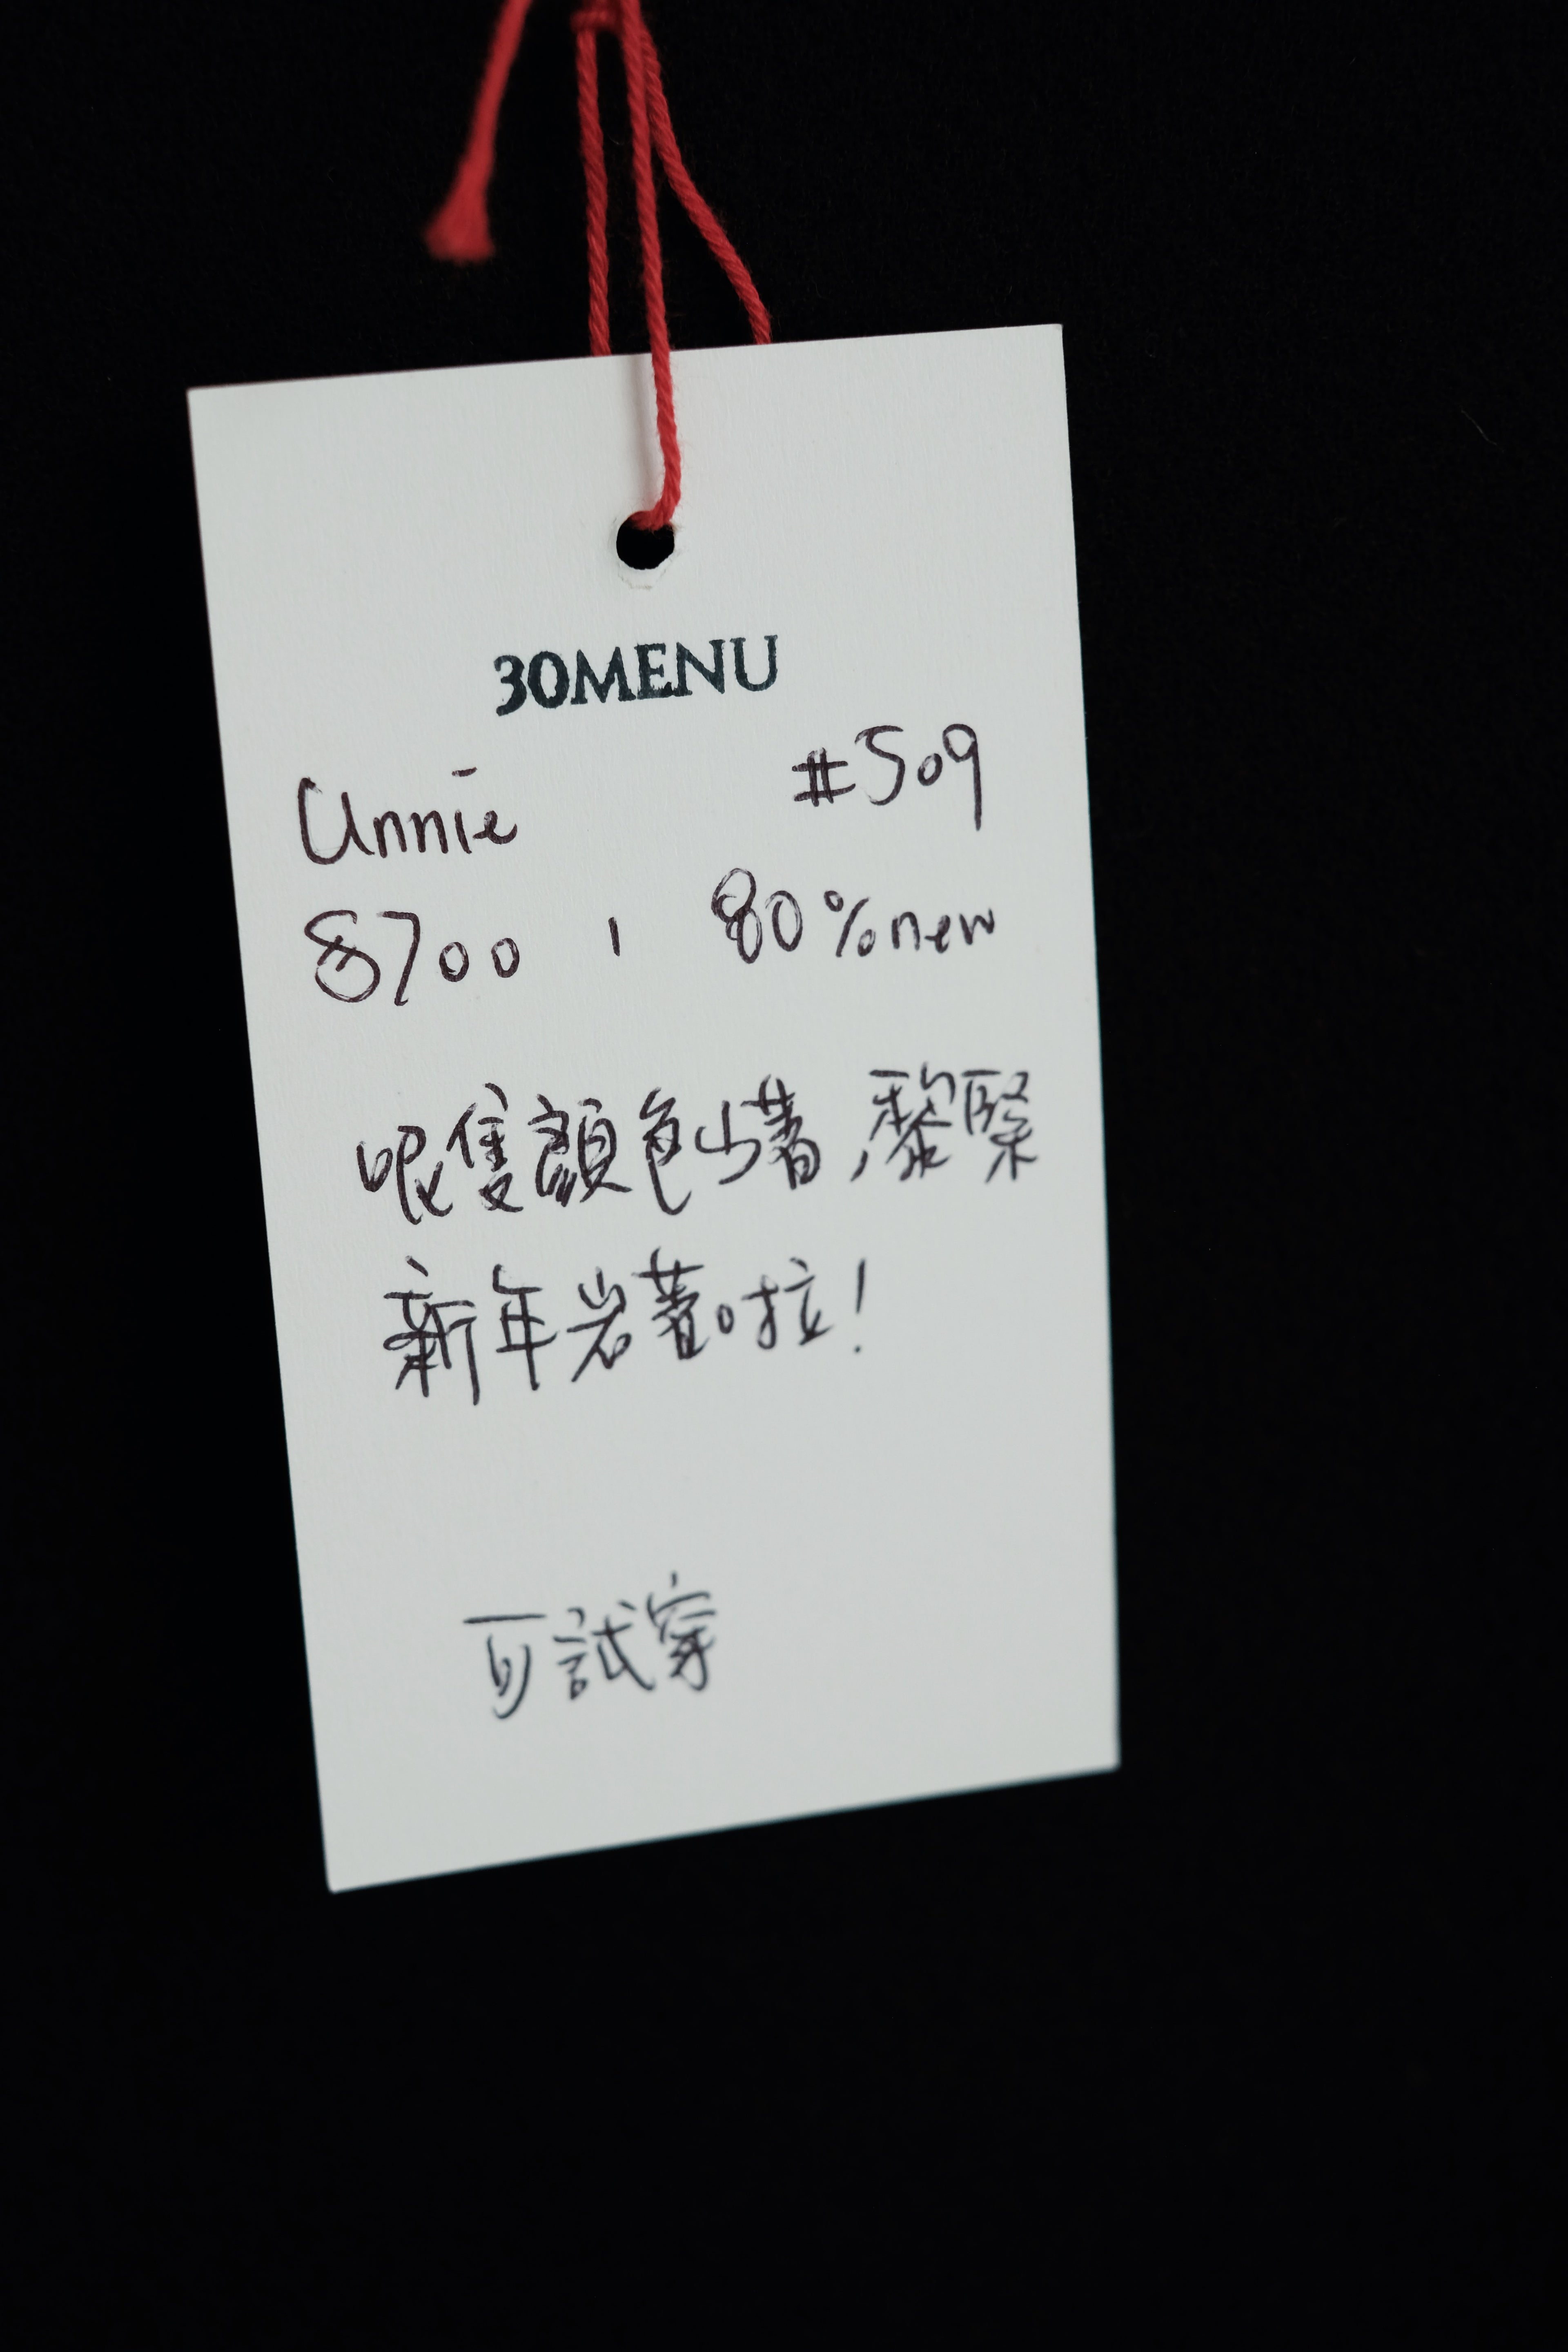 30MENU
Annie #509
$700 , 80%new
呢隻顏色少著,黎緊
新年岩著啦!
可試穿